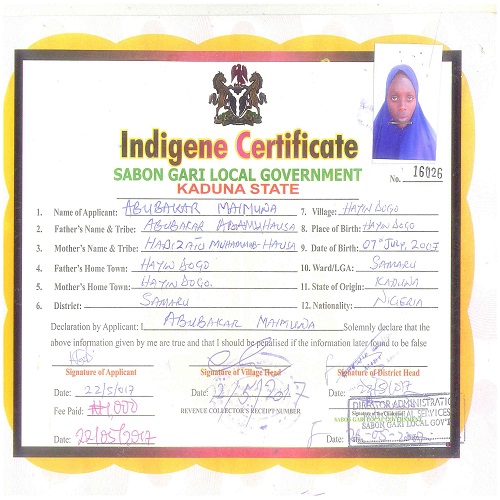 Indigene Certificate
SABON GARI LOCAL GOVERNMENT
KADUNA STATE
No. 16026
1. Name of Applicant: ABUBAKAR MAIMUNA
7. Village: HAYIN DOGO
2. Father's Name & Tribe: ABUBAKAR ADAMU HAUSA
8. Place of Birth: HAYIN DOGO
3. Mother's Name & Tribe: HADIZATU MUHAMMAD-HAUSA
9. Date of Birth: 07th July, 2007
4. Father's Home Town: HAYIN DOGO
10. Ward/LGA: SAMARU
5. Mother's Home Town: HAYIN DOGO.
11. State of Origin: KADUNA
6. District: SAMARU
12. Nationality: NIGERIA
Declaration by Applicant: I ABUBAKAR MAIMUNA Solemnly declare that the
above information given by me are true and that I should be penalised if the information later found to be false
Signature of Applicant
Signature of Village Head
Signature of District Head
Date: 22/5/017
Date:
Date: 22/5/017
Fee Paid: ₦1000
REVENUE COLLECTOR'S RECEIPT NUMBER
DIRECTOR ADMINISTRATION
SABON GARI LOCAL GOV'T
Date: 22/05/2017
Date: